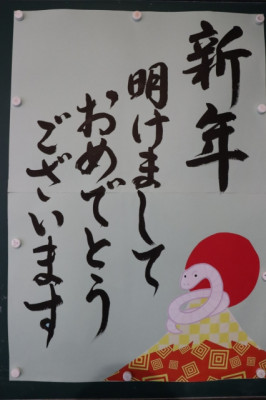 新年
明けまして
おめでとう
ございます